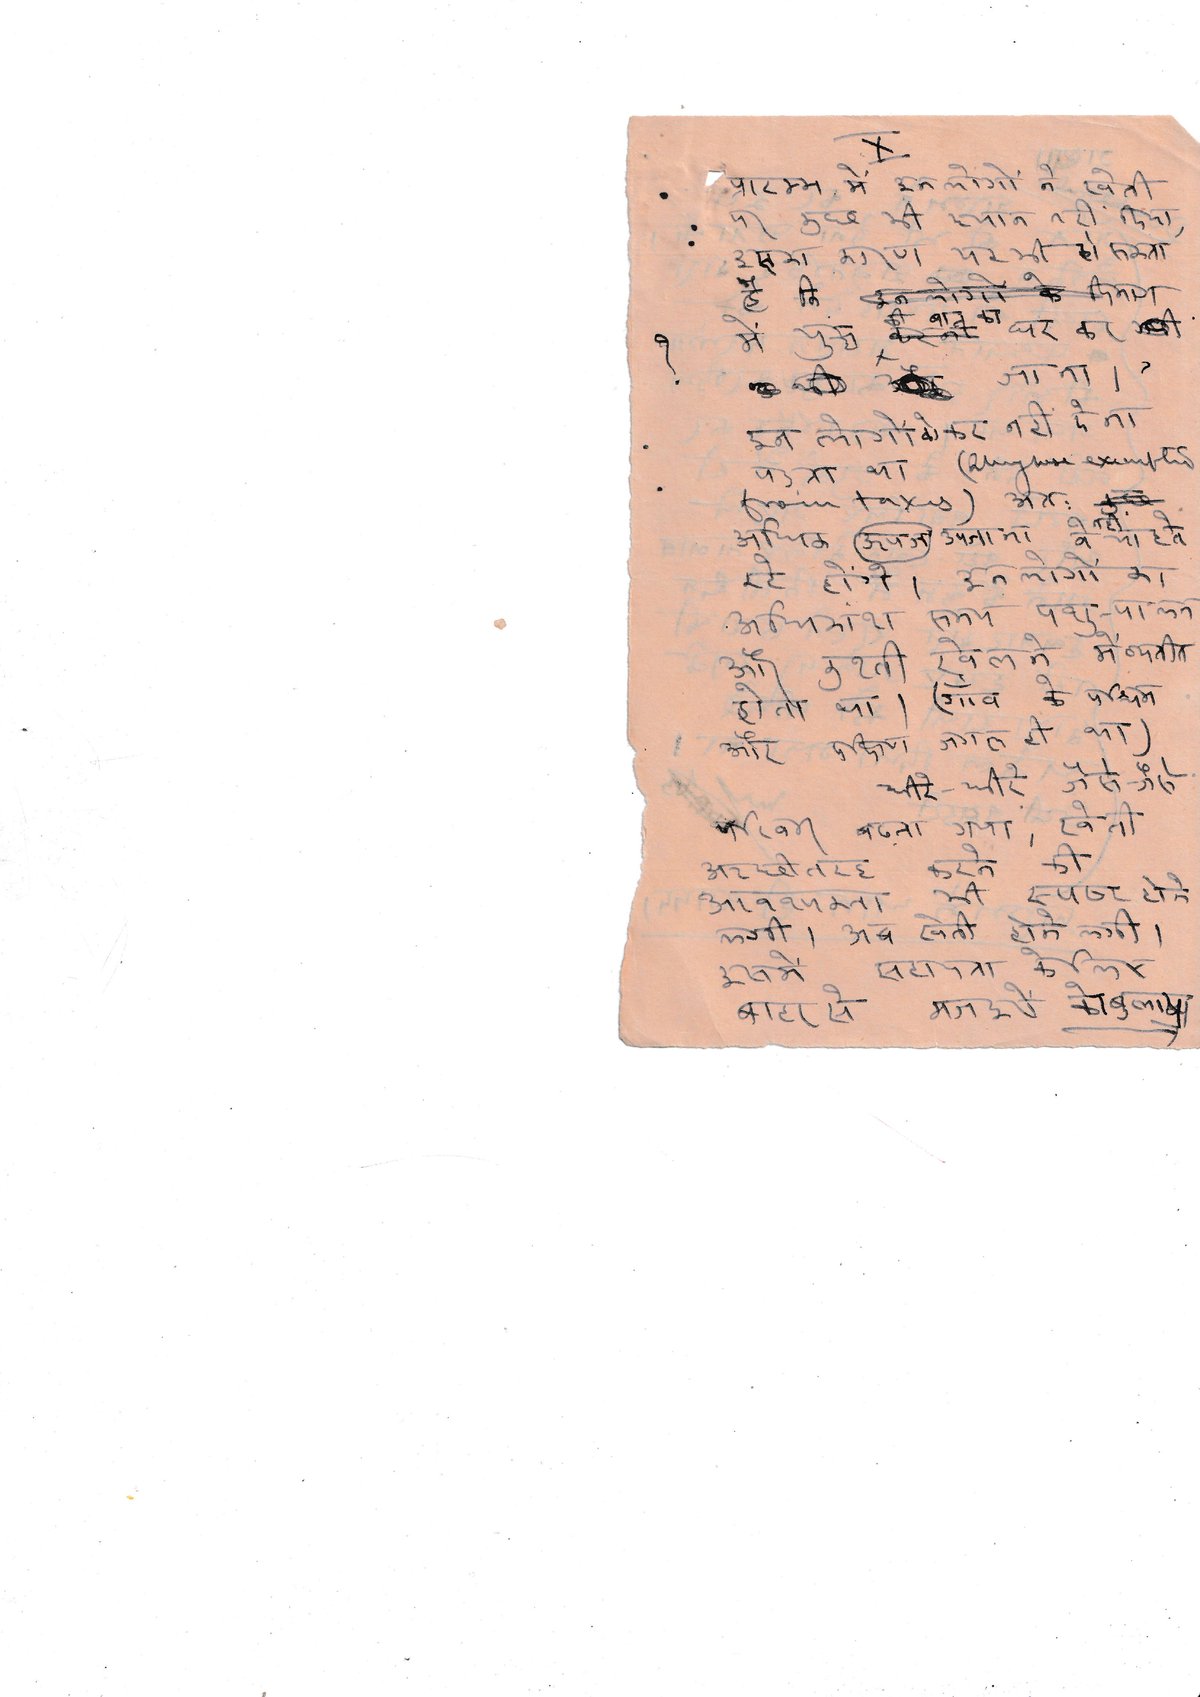 X
प्रारम्भ में इन लोगों ने खेती
पर कुछ भी ध्यान नहीं दिया,
इसका कारण यह भी हो सकता
है कि इन लोगों के दिमाग
में युद्ध की बात का घर कर
जाना ।?
इन लोगों को कर नहीं देना
पड़ता था (They were exempted
from taxes) अतः
अधिक उपज उपजाना वे नहीं चाहते
रहे होंगे । इन लोगों का
अधिकांश समय पशु-पालन
और कुश्ती खेलने में व्यतीत
होता था । (गाँव के पश्चिम
और दक्षिण जंगल ही था)
धीरे-धीरे जैसे-जैसे
परिवार बढता गया, खेती
अच्छी तरह करने की
आवश्यकता भी स्पष्ट होने
लगी । अब खेती होने लगी ।
इसमें सहायता के लिए
बाहर से मजदूरों को बुलाया